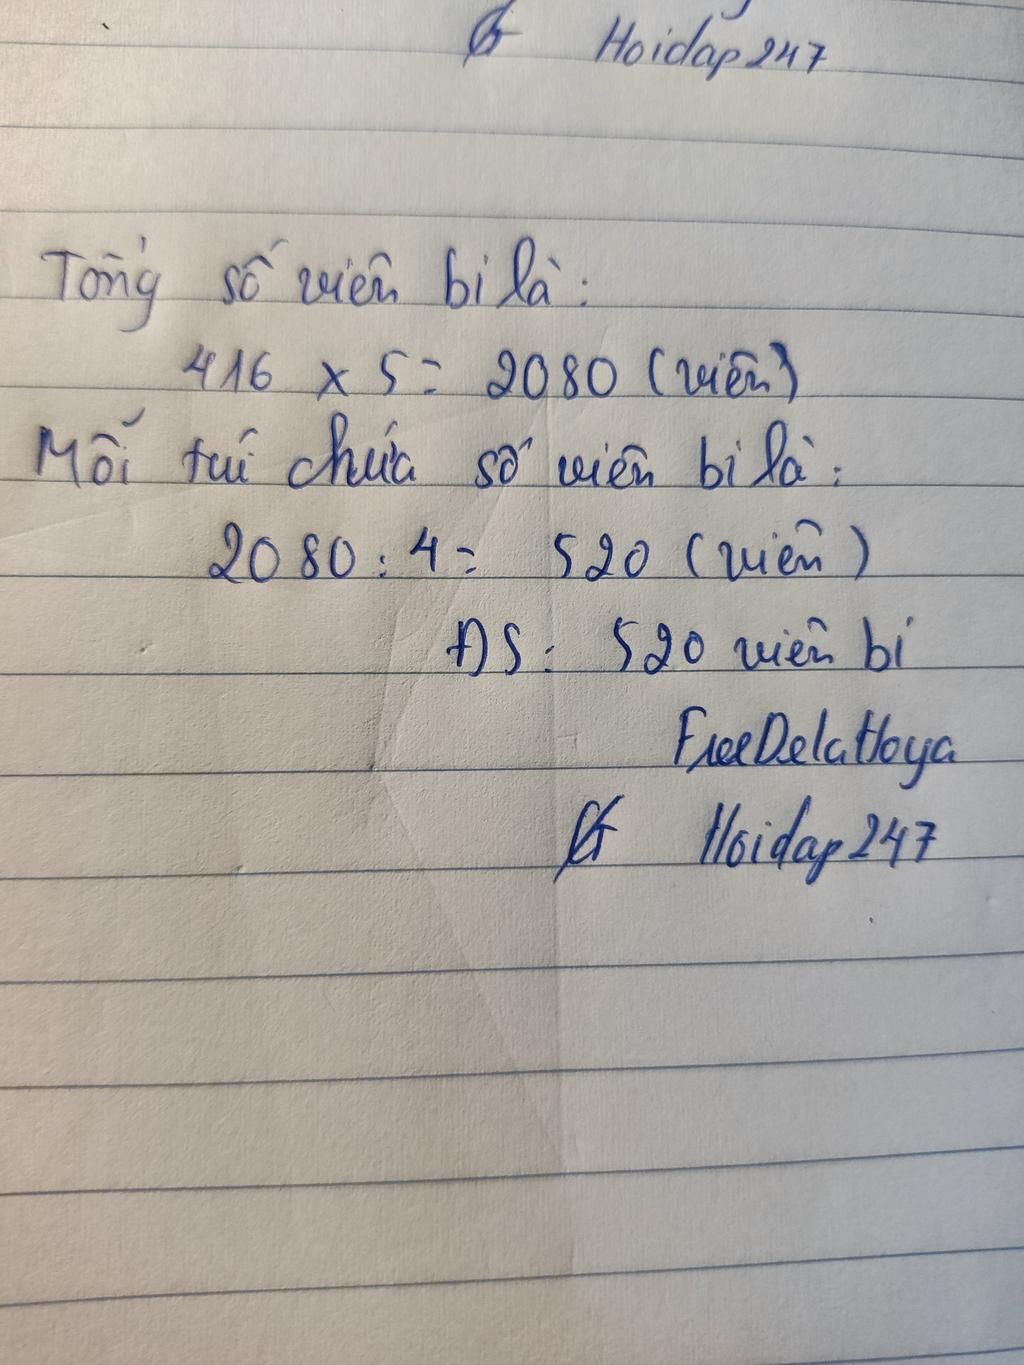 Hoidap247
Tổng số viên bi là:
416 x 5 = 2080 (viên)
Mỗi túi chứa số viên bi là:
2080 : 4 = 520 (viên)
ĐS: 520 viên bi
FreeDelaHoya
Hoidap247